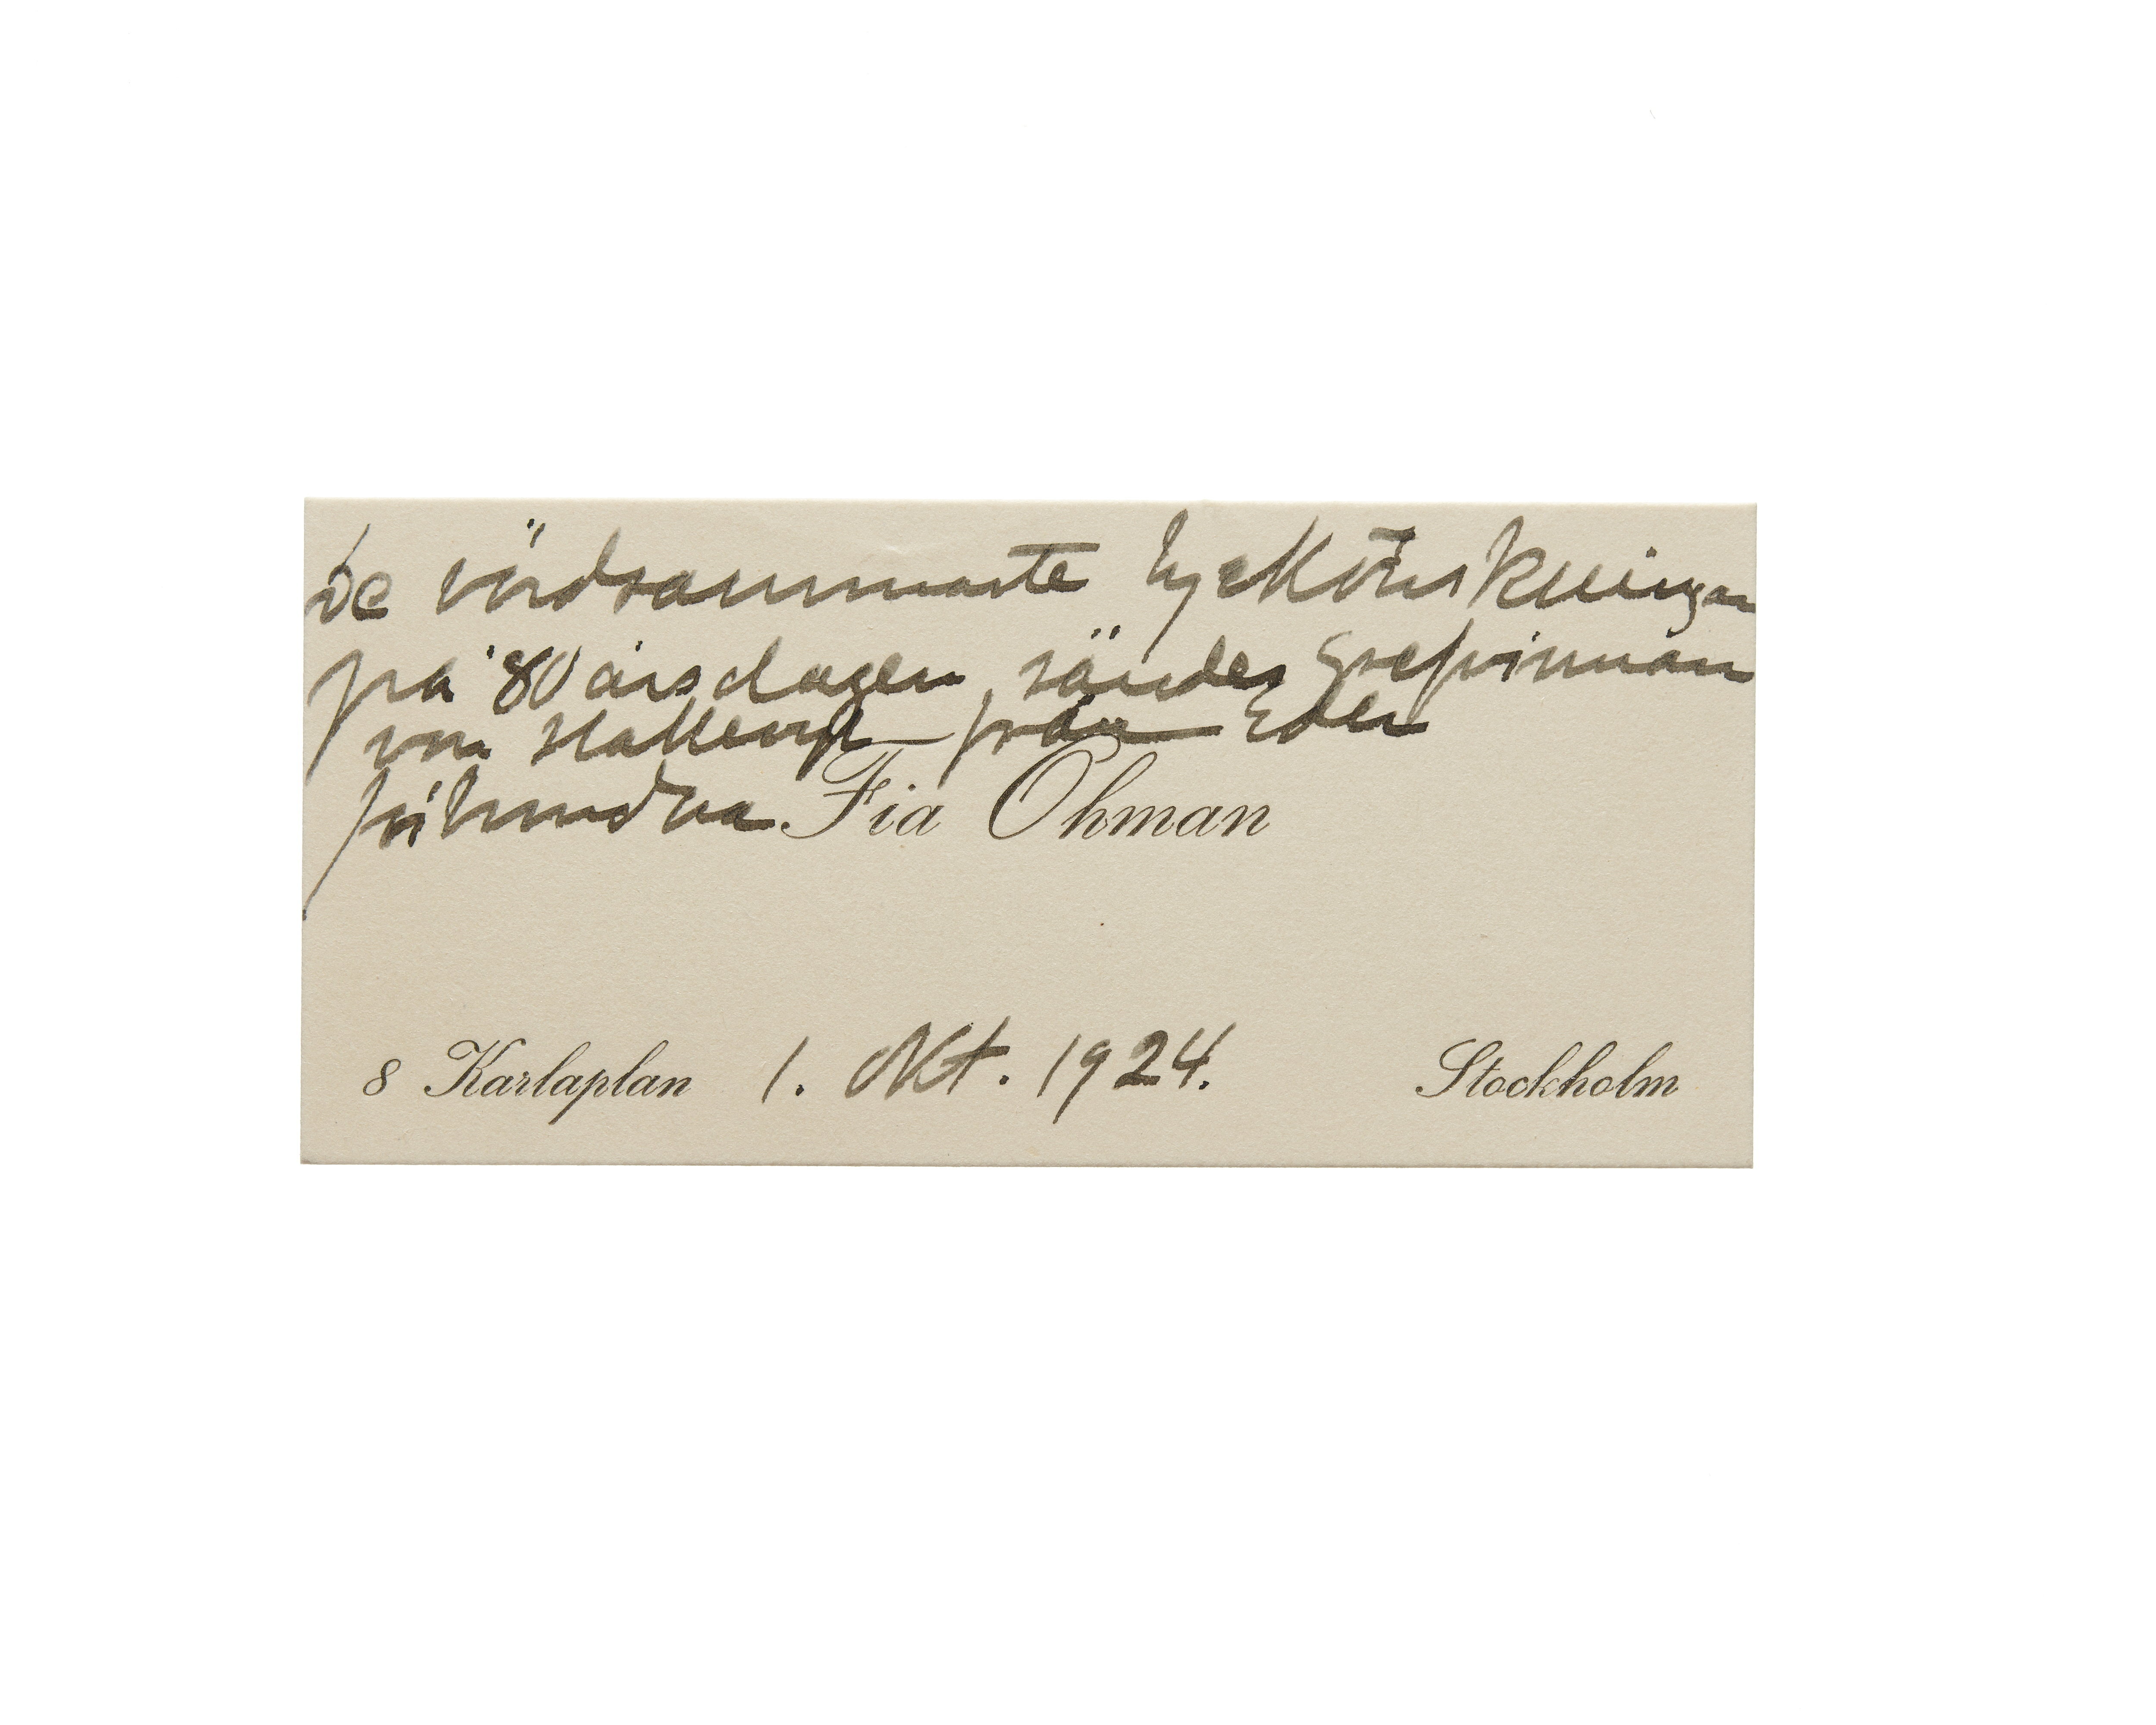 De vördsammaste lyckönskningar
på 80 årsdagen, sändes Grefvinnan
von Hallwyl från Eder
förbundna Fia Öhman
8 Karlaplan 1. Okt. 1924. Stockholm